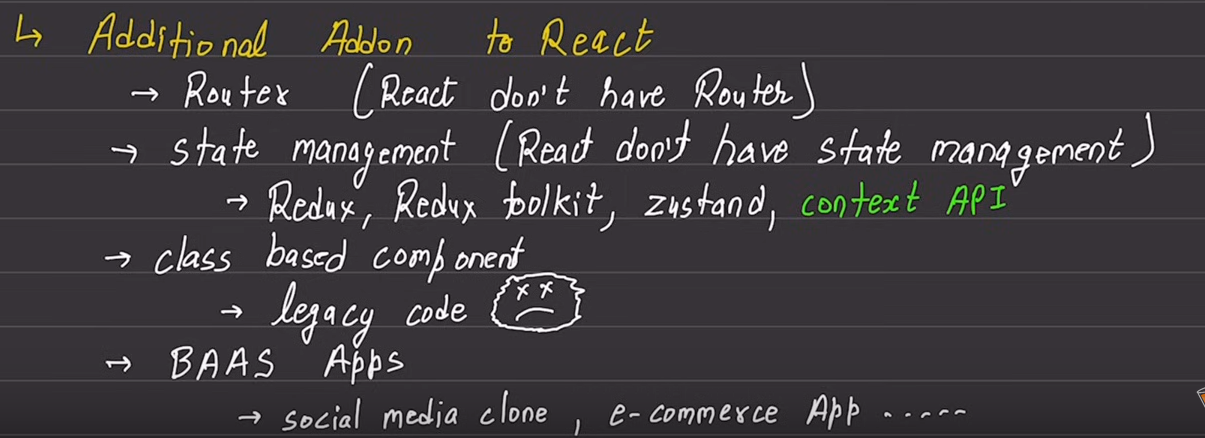 ↳ Additional Addon to React
→ Router (React don't have Router)
→ state management (React don't have state management)
→ Redux, Redux toolkit, zustand, context API
→ class based component
→ legacy code
→ BAAS Apps
→ social media clone, e-commerce App ......